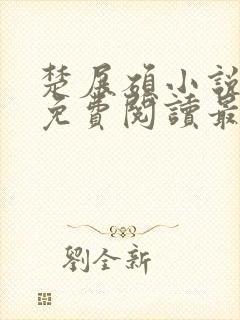 楚展碩小說
免費閱讀最
劉全新